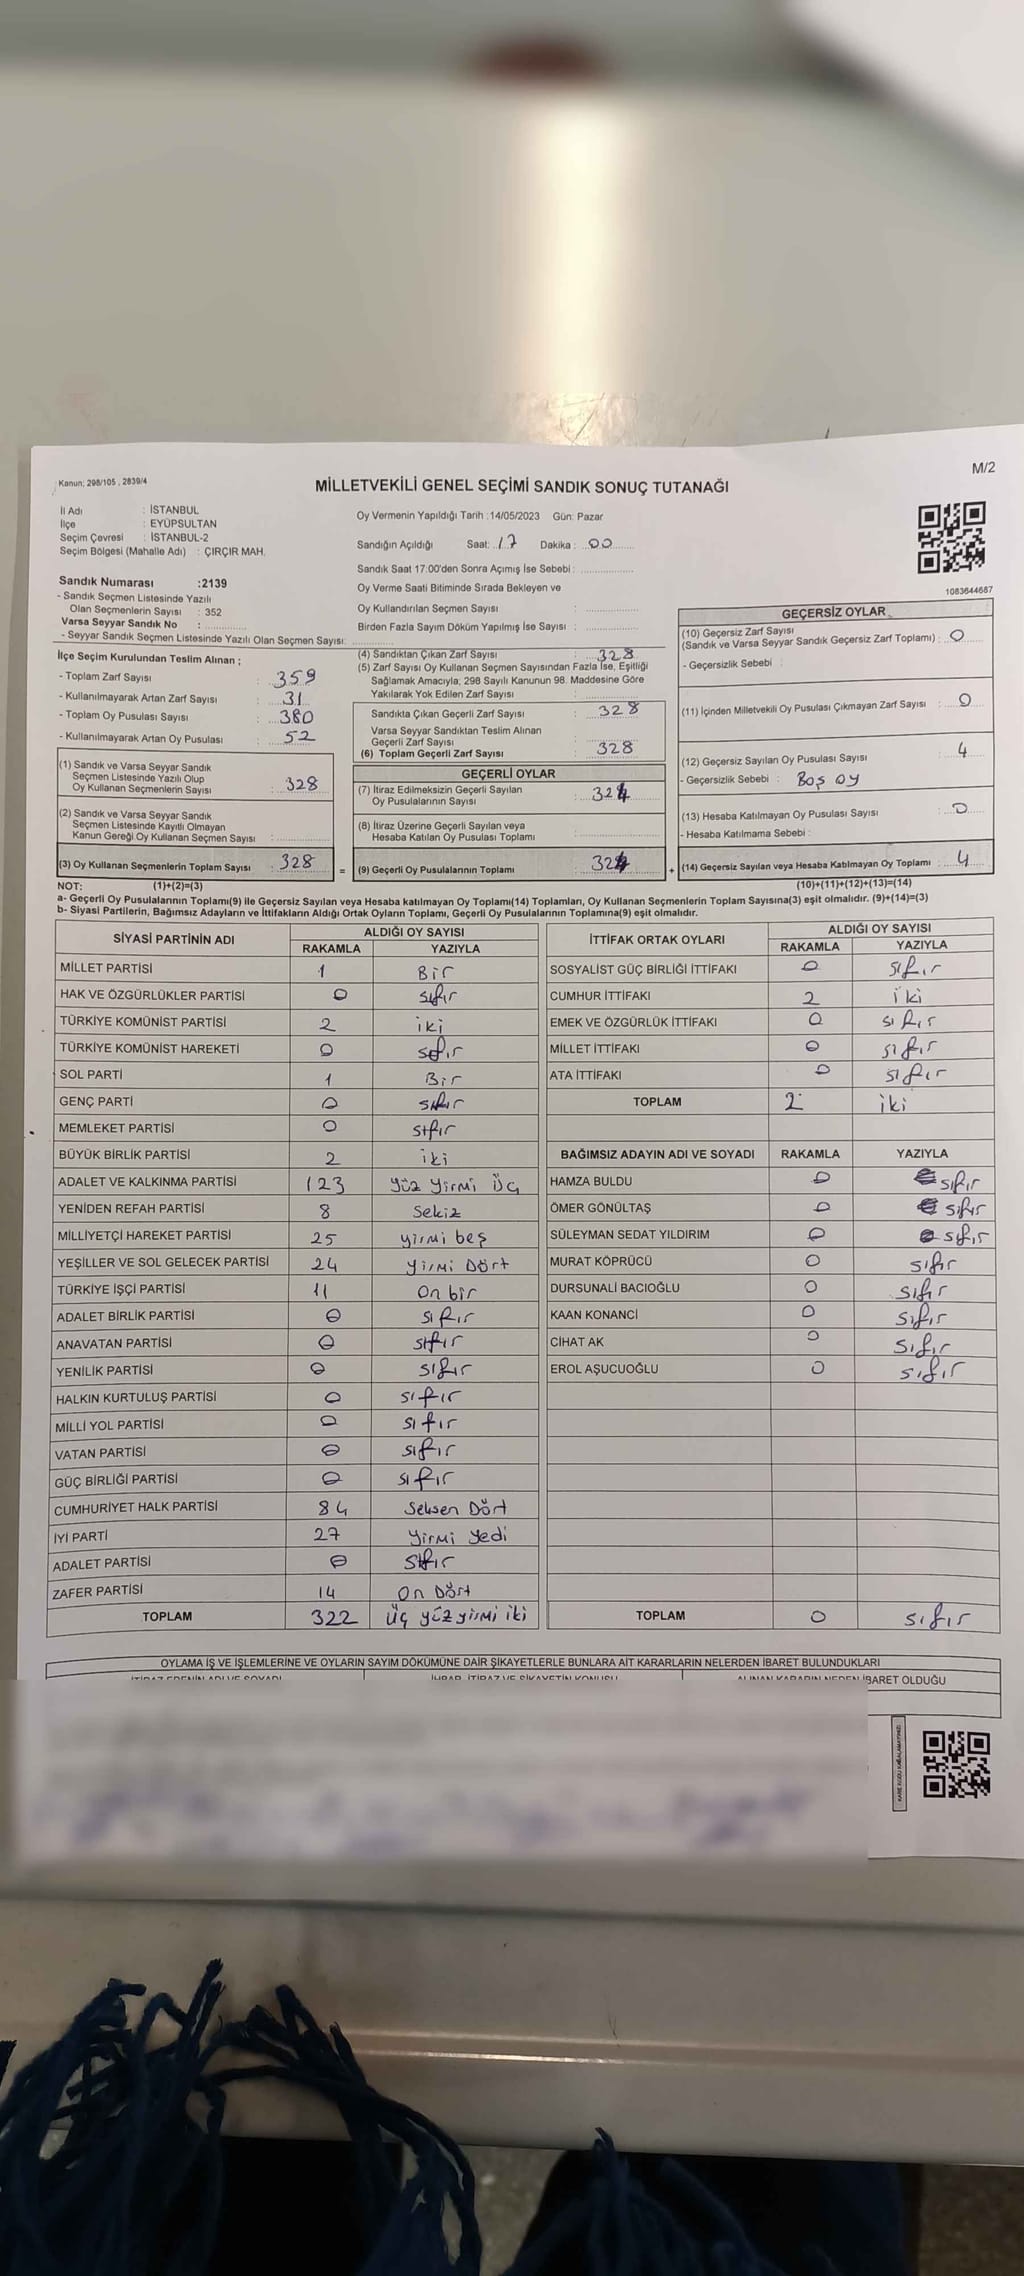 Kanun; 298/105 , 2839/4
M/2
MİLLETVEKİLİ GENEL SEÇİMİ SANDIK SONUÇ TUTANAĞI
İl Adı : İSTANBUL
İlçe : EYÜPSULTAN
Seçim Çevresi : İSTANBUL-2
Seçim Bölgesi (Mahalle Adı) : ÇIRÇIR MAH.
Sandık Numarası :2139
- Sandık Seçmen Listesinde Yazılı
Olan Seçmenlerin Sayısı : 352
Varsa Seyyar Sandık No :
- Seyyar Sandık Seçmen Listesinde Yazılı Olan Seçmen Sayısı:
Oy Vermenin Yapıldığı Tarih :14/05/2023 Gün: Pazar
Sandığın Açıldığı Saat: 17 Dakika : 00
Sandık Saat 17:00'den Sonra Açımış İse Sebebi :
Oy Verme Saati Bitiminde Sırada Bekleyen ve
Oy Kullandırılan Seçmen Sayısı :
Birden Fazla Sayım Döküm Yapılmış İse Sayısı :
1083644687
İlçe Seçim Kurulundan Teslim Alınan ;
- Toplam Zarf Sayısı : 359
- Kullanılmayarak Artan Zarf Sayısı : 31
- Toplam Oy Pusulası Sayısı : 380
- Kullanılmayarak Artan Oy Pusulası : 52
(1) Sandık ve Varsa Seyyar Sandık
Seçmen Listesinde Yazılı Olup
Oy Kullanan Seçmenlerin Sayısı : 328
(2) Sandık ve Varsa Seyyar Sandık
Seçmen Listesinde Kayıtlı Olmayan
Kanun Gereği Oy Kullanan Seçmen Sayısı :
(3) Oy Kullanan Seçmenlerin Toplam Sayısı : 328 =
(4) Sandıktan Çıkan Zarf Sayısı : 328
(5) Zarf Sayısı Oy Kullanan Seçmen Sayısından Fazla İse, Eşitliği
Sağlamak Amacıyla; 298 Sayılı Kanunun 98. Maddesine Göre
Yakılarak Yok Edilen Zarf Sayısı :
Sandıkta Çıkan Geçerli Zarf Sayısı : 328
Varsa Seyyar Sandıktan Teslim Alınan
Geçerli Zarf Sayısı :
(6) Toplam Geçerli Zarf Sayısı : 328
GEÇERLİ OYLAR
(7) İtiraz Edilmeksizin Geçerli Sayılan
Oy Pusulalarının Sayısı : 324
(8) İtiraz Üzerine Geçerli Sayılan veya
Hesaba Katılan Oy Pusulası Toplamı :
(9) Geçerli Oy Pusulalarının Toplamı : 324 +
GEÇERSİZ OYLAR
(10) Geçersiz Zarf Sayısı
(Sandık ve Varsa Seyyar Sandık Geçersiz Zarf Toplamı) : 0
- Geçersizlik Sebebi :
(11) İçinden Milletvekili Oy Pusulası Çıkmayan Zarf Sayısı : 0
(12) Geçersiz Sayılan Oy Pusulası Sayısı : 4
- Geçersizlik Sebebi : Boş oy
(13) Hesaba Katılmayan Oy Pusulası Sayısı : 0
- Hesaba Katılmama Sebebi :
(14) Geçersiz Sayılan veya Hesaba Katılmayan Oy Toplamı : 4
NOT: (1)+(2)=(3) (10)+(11)+(12)+(13)=(14)
a- Geçerli Oy Pusulalarının Toplamı(9) ile Geçersiz Sayılan veya Hesaba katılmayan Oy Toplamı(14) Toplamları, Oy Kullanan Seçmenlerin Toplam Sayısına(3) eşit olmalıdır. (9)+(14)=(3)
b- Siyasi Partilerin, Bağımsız Adayların ve İttifakların Aldığı Ortak Oyların Toplamı, Geçerli Oy Pusulalarının Toplamına(9) eşit olmalıdır.
SİYASİ PARTİNİN ADI ALDIĞI OY SAYISI
RAKAMLA YAZIYLA
MİLLET PARTİSİ 1 Bir
HAK VE ÖZGÜRLÜKLER PARTİSİ 0 sıfır
TÜRKİYE KOMÜNİST PARTİSİ 2 iki
TÜRKİYE KOMÜNİST HAREKETİ 0 sıfır
SOL PARTİ 1 Bir
GENÇ PARTİ 0 sıfır
MEMLEKET PARTİSİ 0 sıfır
BÜYÜK BİRLİK PARTİSİ 2 iki
ADALET VE KALKINMA PARTİSİ 123 yüz yirmi üç
YENİDEN REFAH PARTİSİ 8 Sekiz
MİLLİYETÇİ HAREKET PARTİSİ 25 yirmi beş
YEŞİLLER VE SOL GELECEK PARTİSİ 24 yirmi Dört
TÜRKİYE İŞÇİ PARTİSİ 11 On bir
ADALET BİRLİK PARTİSİ 0 sıfır
ANAVATAN PARTİSİ 0 sıfır
YENİLİK PARTİSİ 0 sıfır
HALKIN KURTULUŞ PARTİSİ 0 sıfır
MİLLİ YOL PARTİSİ 0 sıfır
VATAN PARTİSİ 0 sıfır
GÜÇ BİRLİĞİ PARTİSİ 0 sıfır
CUMHURİYET HALK PARTİSİ 84 Seksen Dört
İYİ PARTİ 27 yirmi yedi
ADALET PARTİSİ 0 sıfır
ZAFER PARTİSİ 14 On Dört
TOPLAM 322 Üç yüz yirmi iki
İTTİFAK ORTAK OYLARI ALDIĞI OY SAYISI
RAKAMLA YAZIYLA
SOSYALİST GÜÇ BİRLİĞİ İTTİFAKI 0 sıfır
CUMHUR İTTİFAKI 2 iki
EMEK VE ÖZGÜRLÜK İTTİFAKI 0 sıfır
MİLLET İTTİFAKI 0 sıfır
ATA İTTİFAKI 0 sıfır
TOPLAM 2 iki
BAĞIMSIZ ADAYIN ADI VE SOYADI RAKAMLA YAZIYLA
HAMZA BULDU 0 sıfır
ÖMER GÖNÜLTAŞ 0 sıfır
SÜLEYMAN SEDAT YILDIRIM 0 sıfır
MURAT KÖPRÜCÜ 0 sıfır
DURSUNALİ BACIOĞLU 0 sıfır
KAAN KONANCİ 0 sıfır
CİHAT AK 0 sıfır
EROL AŞUCUOĞLU 0 sıfır
TOPLAM 0 sıfır
OYLAMA İŞ VE İŞLEMLERİNE VE OYLARIN SAYIM DÖKÜMÜNE DAİR ŞİKAYETLERLE BUNLARA AİT KARARLARIN NELERDEN İBARET BULUNDUKLARI
İTİRAZ EDENİN ADI VE SOYADI İHBAR, İTİRAZ VE ŞİKAYETİN KONUSU ALINAN KARARIN NEDEN İBARET OLDUĞU